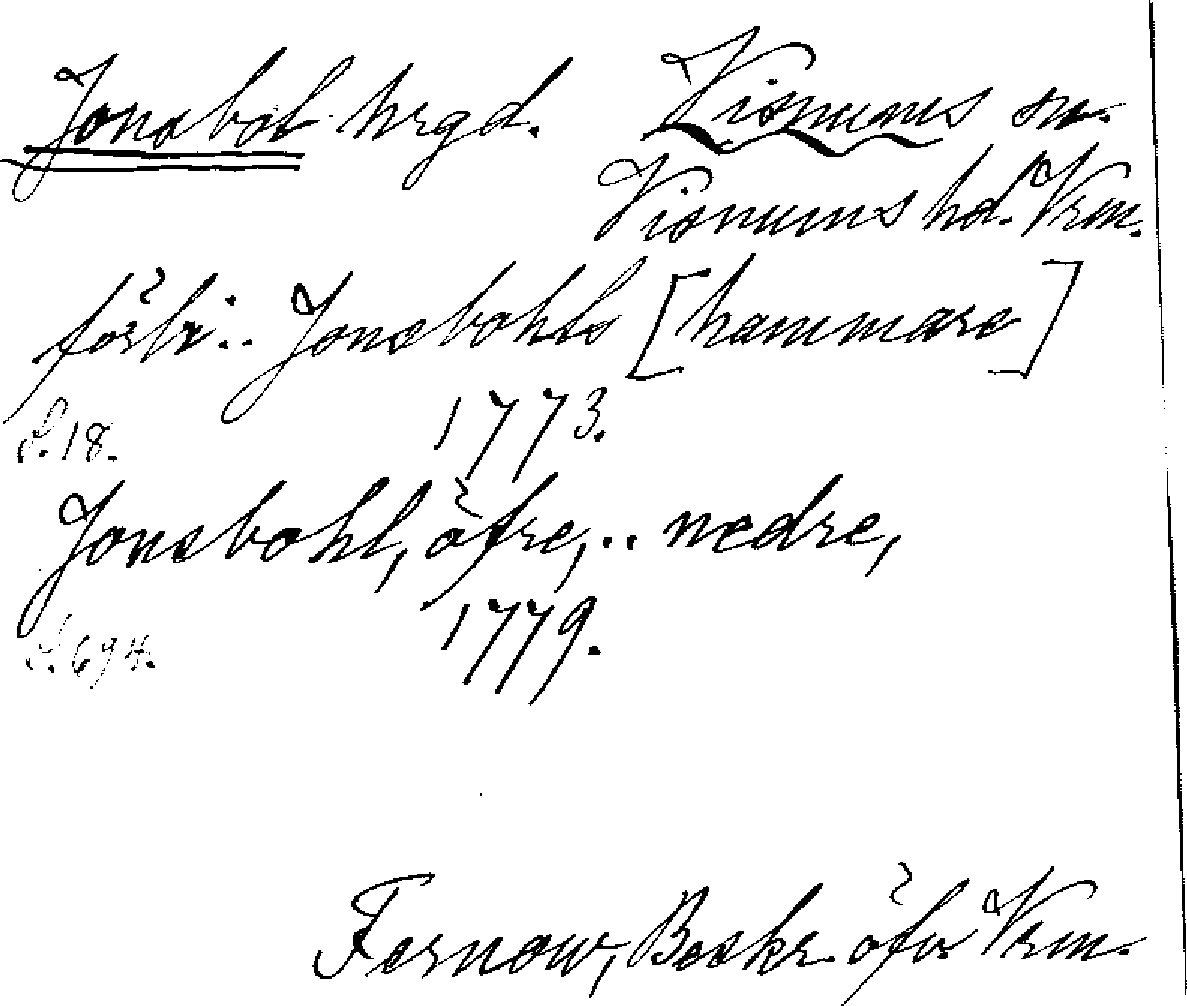 Jonsbol hrgd. Visnums sn.
Visnums hd. Vrm.
förbi.. Jonsbohls [hammare]
S. 18. 1773.
Jonsbohl, öfre, .. nedre,
S. 694. 1779.
Fernow, Beskr. öfver Vrm.